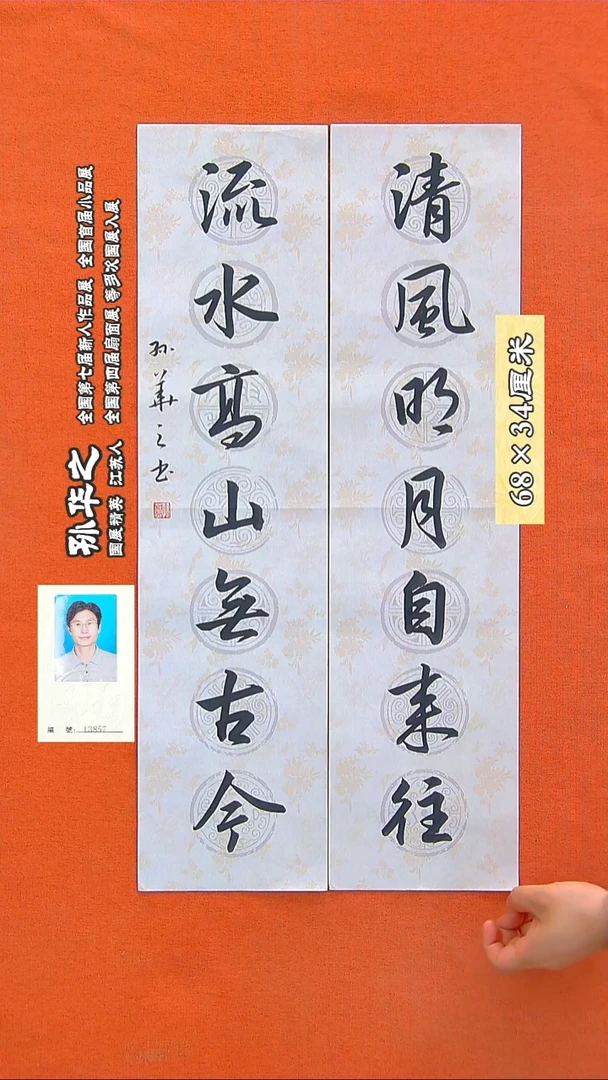 清風明月自来往
流水高山無古今
孙華之书
68×34厘米
孙华之
国展精英 江苏人
全国第七届新人作品展 全国首届小品展
全国第四届扇面展 等多次国展入展
編 號: 13857